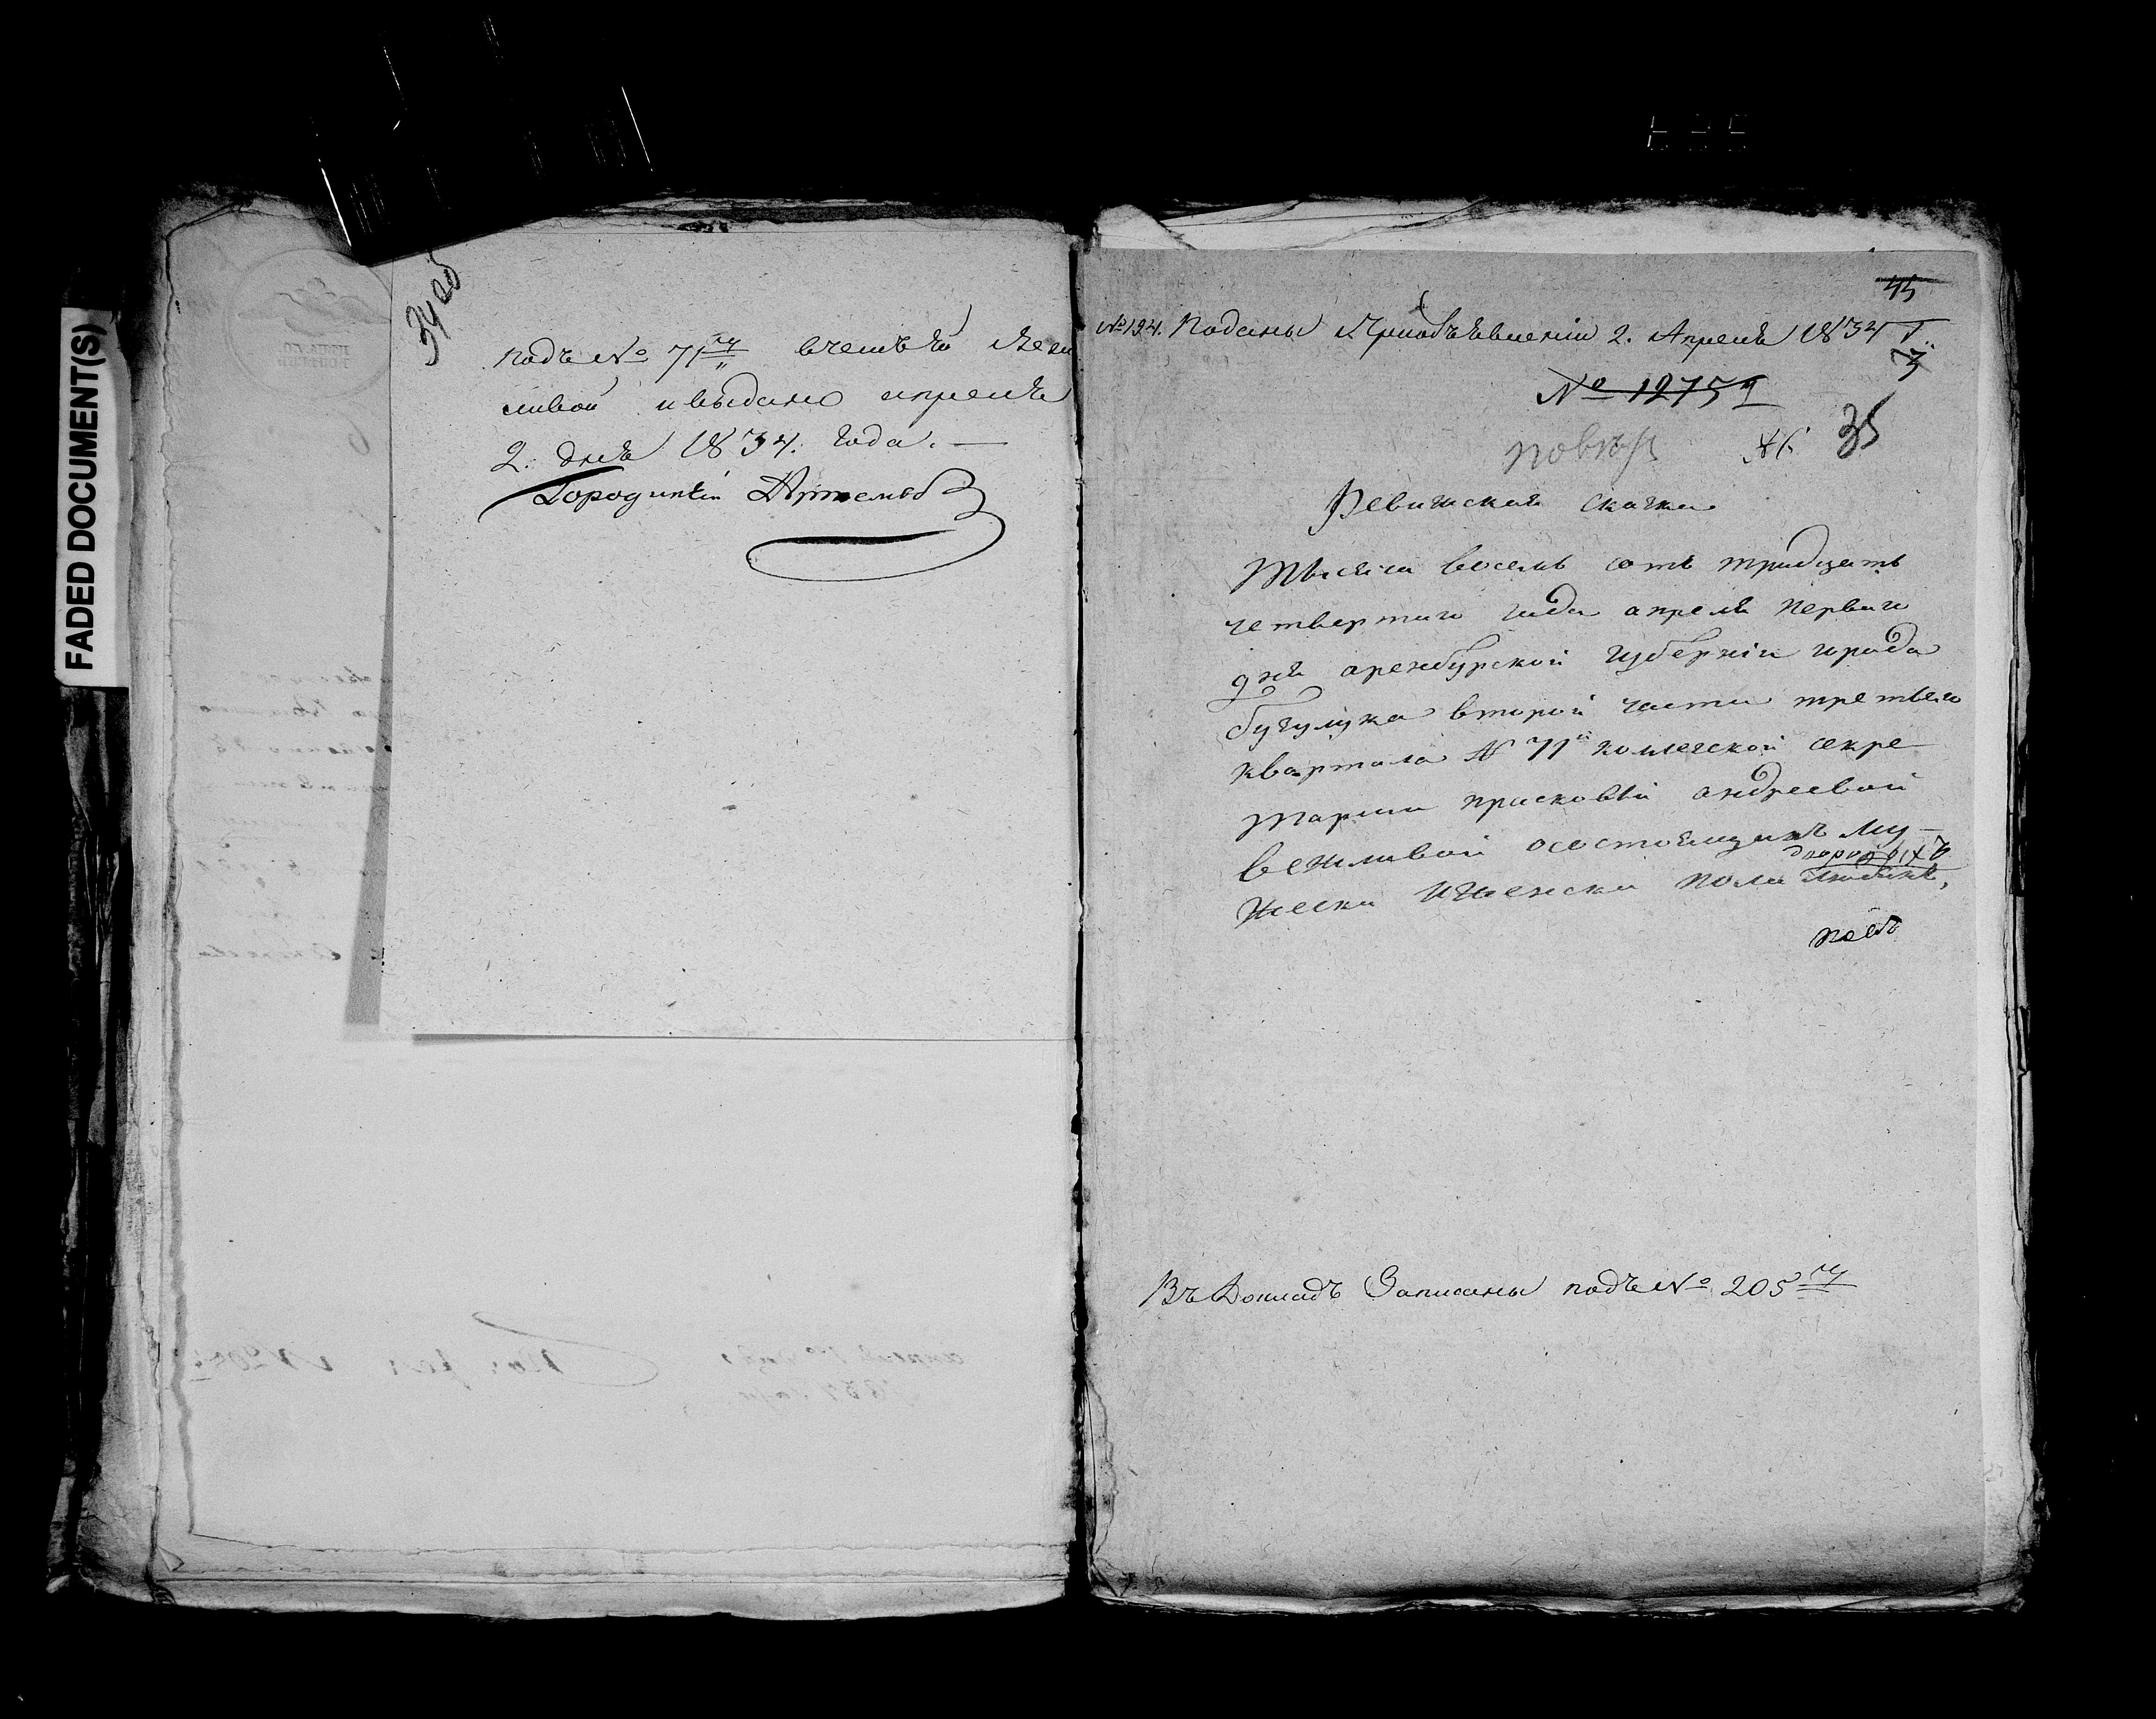 FADED DOCUMENT(S)
34 об
подъ № 71мъ
ливой и выдано апреля
2. дня 1834. года. —
Городничій Артемьев
45
№ 194. Поданы при объявленіи 2. Апреля 1834 г.
№ 12751
35
Ревижская скаска
тысяча восемь сотъ тридцать
четвертаго года апреля перваго
дня оренбурской губерніи города
бугулука второй части третьяго
квартала № 71й колежской секре-
тарши прасковьи андреевой
вежливой осостоящихъ му-
дворовыхъ
жеска иженска пола людяхъ,
Въ Докладъ Записаны подъ № 205мъ